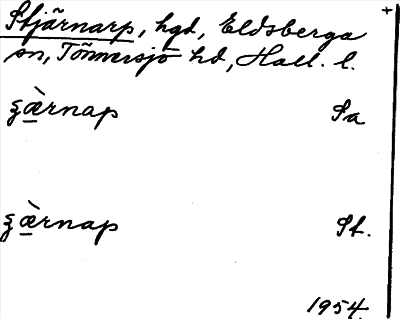 Stjärnarp, hgd, Eldsberga +
sn, Tönnersjö hd, Hall. l.
ʂæ̀rnap Sa
ʂæ̀rnap St.
1954.